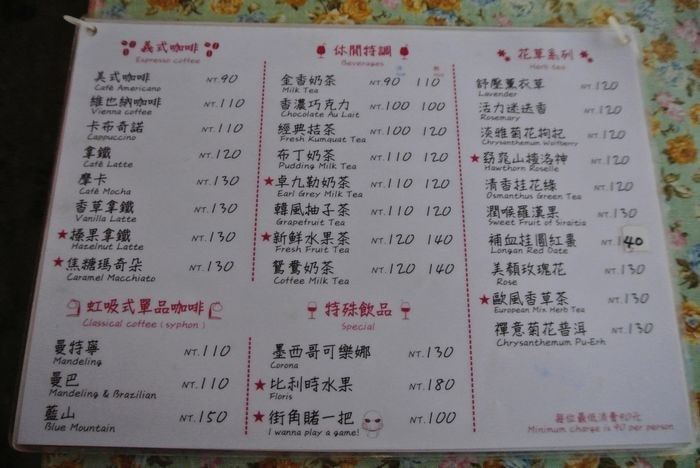 義式咖啡
Espresso coffee
美式咖啡 NT.90
Café Americano
維也納咖啡 NT.110
Vienna coffee
卡布奇諾 NT.110
Cappuccino
拿鐵 NT.120
Café Latte
摩卡 NT.130
Café Mocha
香草拿鐵 NT.130
Vanilla Latte
★榛果拿鐵 NT.130
Hazelnut Latte
★焦糖瑪奇朵 NT.130
Caramel Macchiato
虹吸式單品咖啡
Classical coffee ( syphon )
曼特寧 NT.110
Mandeling
曼巴 NT.110
Mandeling & Brazilian
藍山 NT.150
Blue Mountain
休閒特調
Beverages
金香奶茶 NT.90 110
Milk Tea
香濃巧克力 NT.100 100
Chocolate Au Lait
經典桔茶 NT.100 120
Fresh Kumquat Tea
布丁奶茶 NT.110 120
Pudding Milk Tea
★卓九勒奶茶 NT.110 120
Earl Grey Milk Tea
韓風柚子茶 NT.110 120
Grapefruit Tea
★新鮮水果茶 NT.120 140
Fresh Fruit Tea
鴛鴦奶茶 NT.120 140
Coffee Milk Tea
特殊飲品
Special
墨西哥可樂娜 NT.130
Corona
★比利時水果 NT.180
Floris
★街角賭一把 NT.100
I wanna play a game!
花草系列
Herb tea
舒壓薰衣草 NT.120
Lavender
活力迷迭香 NT.120
Rosemary
淡雅菊花枸杞 NT.120
Chrysanthemum Wolfberry
★窈窕山楂洛神 NT.120
Hawthorn Roselle
清香桂花綠 NT.120
Osmanthus Green Tea
潤喉羅漢果 NT.130
Sweet Fruit of Siraitia
補血桂圓紅棗 NT.140
Longan Red Date
美顏玫瑰花 NT.130
Rose
★歐風香草茶 NT.130
European Mix Herb Tea
禪意菊花普洱 NT.130
Chrysanthemum Pu-Erh
每位最低消費90元
Minimum charge is 90 per person